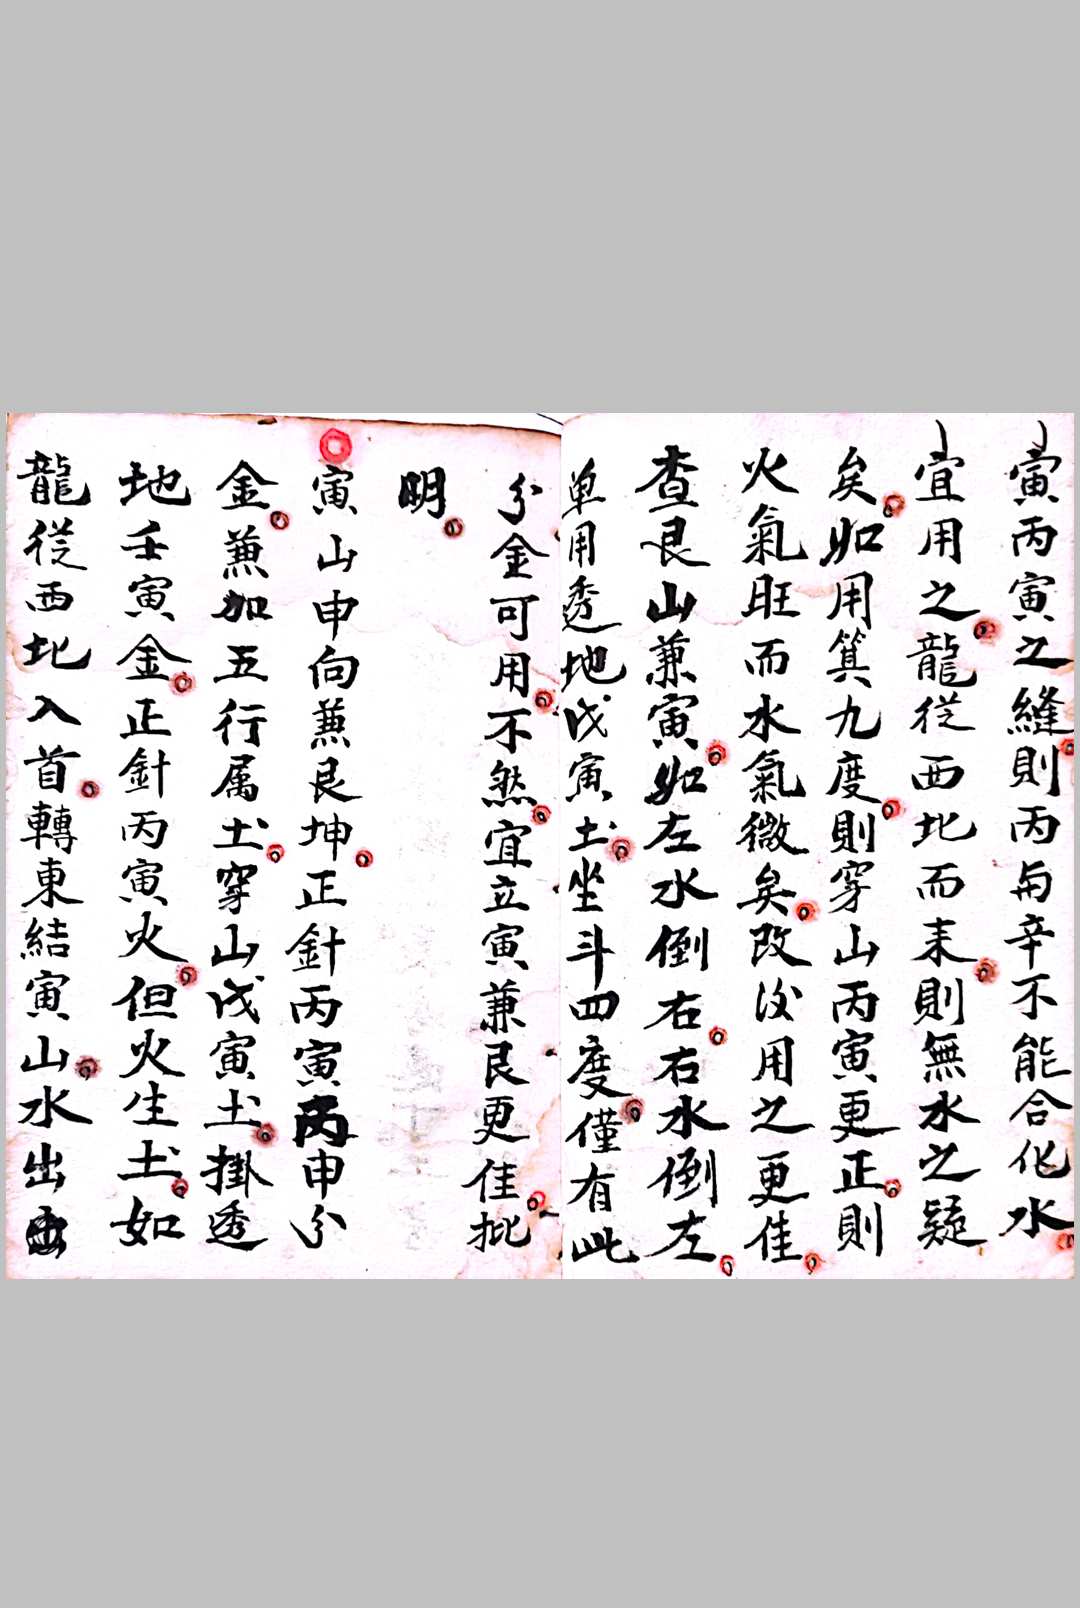 寅丙寅之縫則丙與辛不能合化水
宜用之龍從西北而來則無水之疑
矣如用箕九度則穿山丙寅更正則
火氣旺而水氣微矣改後用之更佳
查艮山兼寅如左水倒右右水倒左
单用透地戊寅土坐斗四度僅有此
分金可用不然宜立寅兼艮更佳批
明
寅山申向兼艮坤正針丙寅丙申分
金兼加五行属土穿山戊寅土掛透
地壬寅金正針丙寅火但火生土如
龍從西北入首轉東結寅山水出